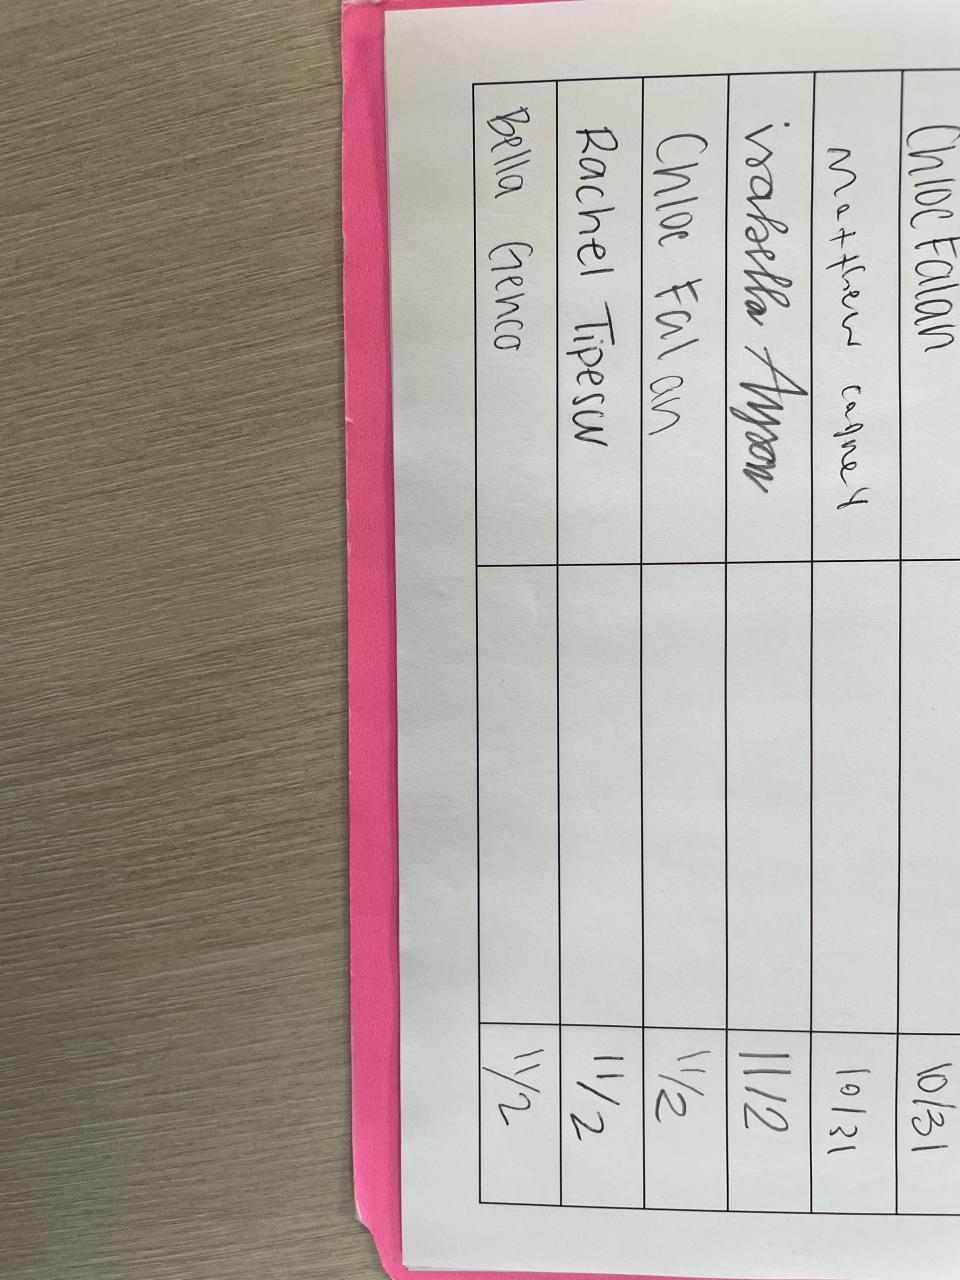 Chloe Falan 10/31
Matthew Cagney 10/31
isabella Ayson 11/2
Chloe Falan 11/2
Rachel Tipescu 11/2
Bella Genco 11/2